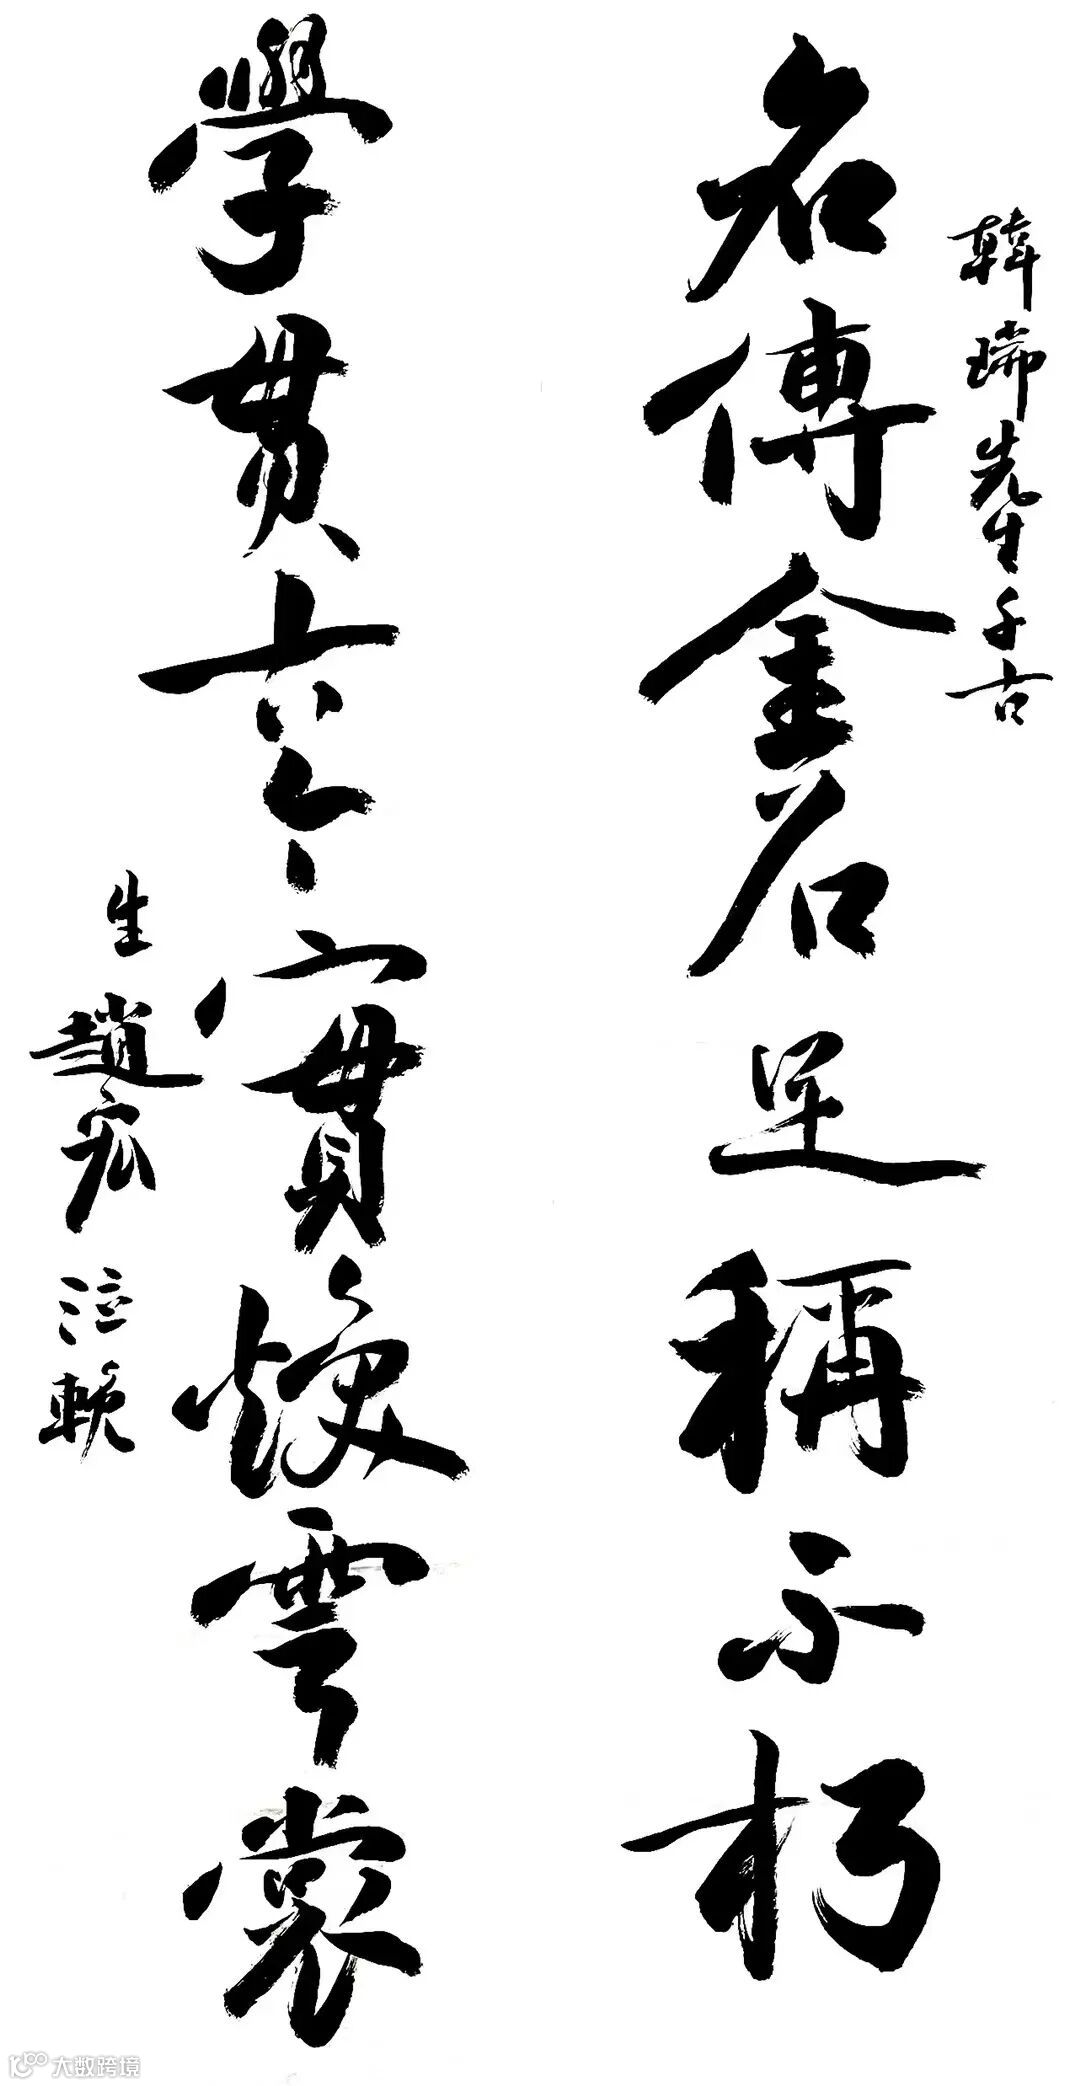 韓瑞先生千古
名傳金石足稱不朽
學貫古今實煥雲裳
生趙宏泣輓
大数跨境